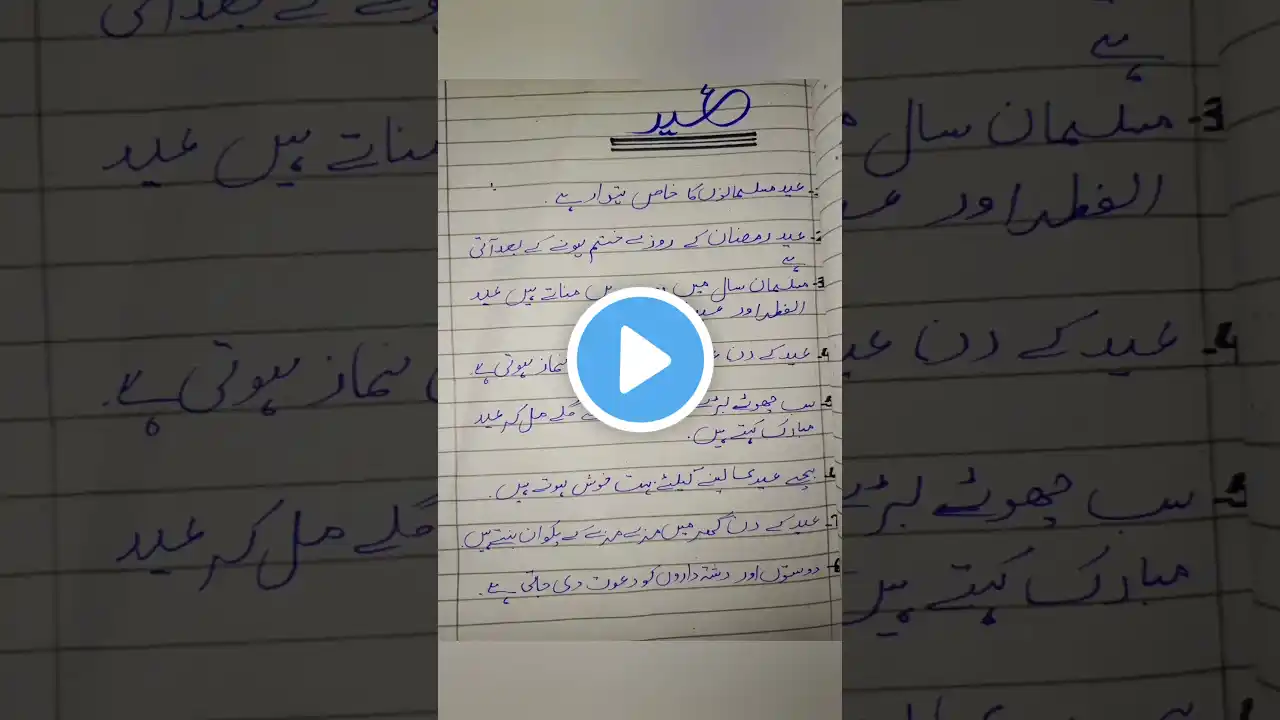 عید
1- عید مسلمانوں کا خاص تہوار ہے۔
2- عید رمضان کے روزے ختم ہونے کے بعد آتی
ہے
3- مسلمان سال میں مناتے ہیں عید
الفطر اور
4- عید کے دن نماز ہوتی ہے۔
5- سب چھوٹے بڑے گلے مل کر عید
مبارک کہتے ہیں۔
6- بچے عیدی لینے کیلئے بہت خوش ہوتے ہیں۔
7- عید کے دن گھر میں مزے مزے کے پکوان بنتے ہیں۔
8- دوستوں اور رشتہ داروں کو دعوت دی جاتی ہے۔